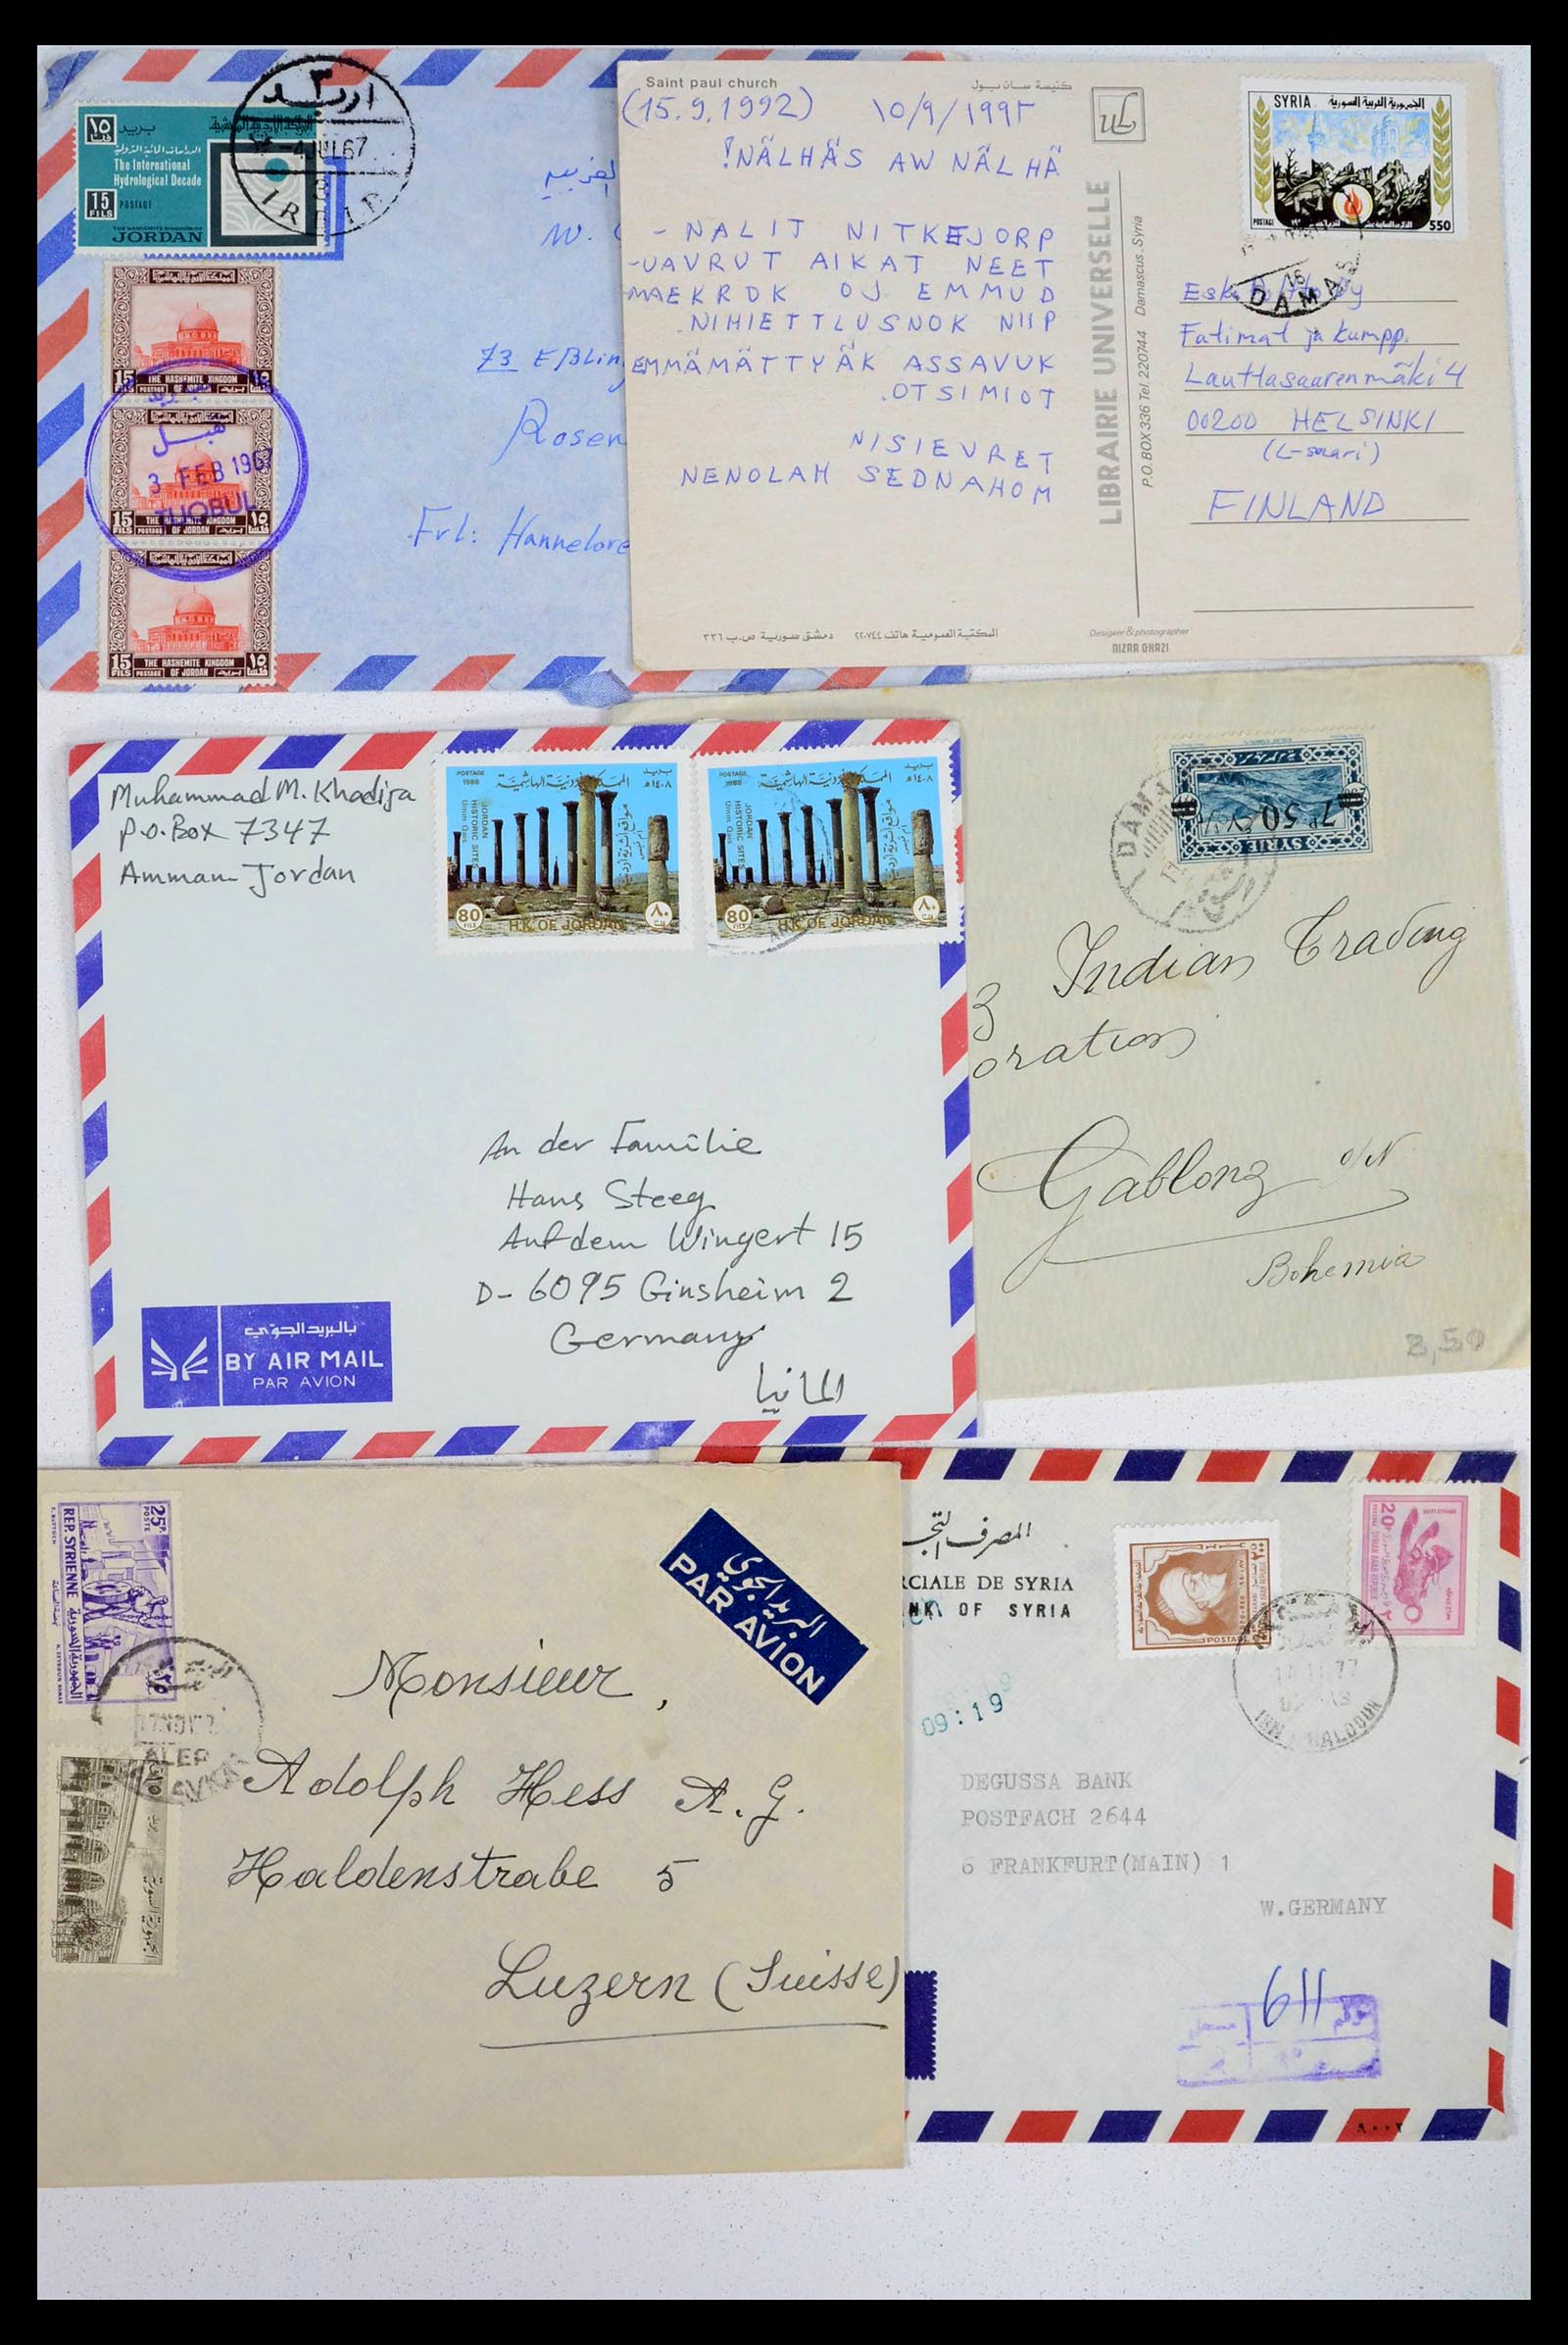 اربد
4 JUL 67
IRBID
١٥
بريد
The International
Hydrological Decade
15 FILS
POSTAGE
THE HASHEMITE KINGDOM OF
JORDAN
15 FILS
THE HASHEMITE KINGDOM
POSTAGE OF JORDAN
3 FEB 1967
THE HASHEMITE KINGDOM
POSTAGE OF JORDAN
15 FILS
THE HASHEMITE KINGDOM
POSTAGE OF JORDAN
W.
73 Eßlin
Rosen
Frl: Hannelore
Saint paul church
كنيسة سان بول
(15.9.1992) ١٥/٩/١٩٩٢
!NÄLHÄS AW NÄLHÄ
- NALIT NITKEJORP
-UAVRUT AIKAT NEET
-MAEKRDK OJ EMMUD
.NIHIETTLUSNOK NIIP
EMMÄMÄTTYÄK ASSAVUK
.OTSIMIOT
NISIEVRET
NENOLAH SEDNAHOM
LIBRAIRIE UNIVERSELLE
P.O.BOX 336 Tel. 220744 Damascus. Syria
المكتبة العمومية هاتف ٢٢٠٧٤٤ دمشق سورية ص.ب ٣٣٦
Designer & photographer
NIZAR GHAZI
SYRIA
الجمهورية العربية السورية
POSTAGE
550
DAMAS
Fatimat ja kumpp.
Lauttasaarenmäki 4
00200 HELSINKI
(L-saari)
FINLAND
Muhammad M. Khadija
P.O. Box 7347
Amman Jordan
POSTAGE 1988
المملكة الأردنية الهاشمية
بريد ١٤٠٨هـ
JORDAN HISTORIC SITES
Umm Qais
80 FILS
H.K. OF JORDAN
٨٠
POSTAGE 1988
المملكة الأردنية الهاشمية
بريد ١٤٠٨هـ
JORDAN HISTORIC SITES
Umm Qais
80 FILS
H.K. OF JORDAN
٨٠
An der Familie
Hans Steeg
Auf dem Wingert 15
D-6095 Ginsheim 2
Germany
المانيا
بالبريد الجوي
BY AIR MAIL
PAR AVION
SYRIE
7P 50
DAMA
Indian Trading
oration
Gablong o/N
Bohemia
3,50
25P
POSTE
REP. SYRIENNE
الجمهورية السورية
NOV
ALEP
البريد الجوي
PAR AVION
Monsieur,
Adolph Hess A.G.
Haldenstrabe 5
Luzern (Suisse)
المصرف التجـ
RCIALE DE SYRIA
NK OF SYRIA
09:19
POSTAGE
20P
SYRIAN ARAB REPUBLIC
IBN KHALDOUN
DEGUSSA BANK
POSTFACH 2644
6 FRANKFURT(MAIN) 1
W.GERMANY
611